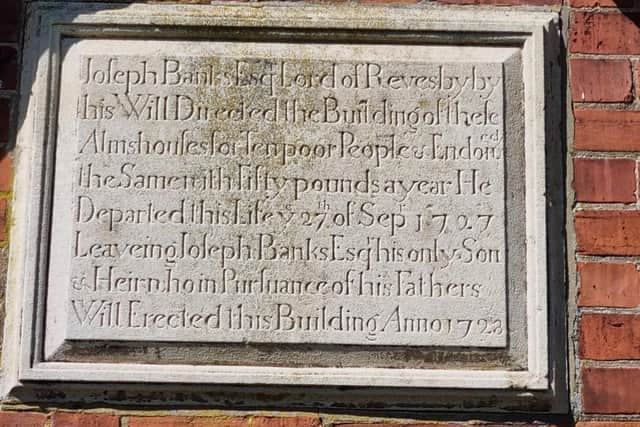 Joseph Banks Esqr Lord of Revesby by
his Will Directed the Building of these
Almshouses for Ten poor People & Endowed
the Same with Fifty pounds a year He
Departed this Life ye 27th of Sep 1727
Leaveing Joseph Banks Esqr his only Son
& Heir who in Pursuance of his Fathers
Will Erected this Building Anno 1728